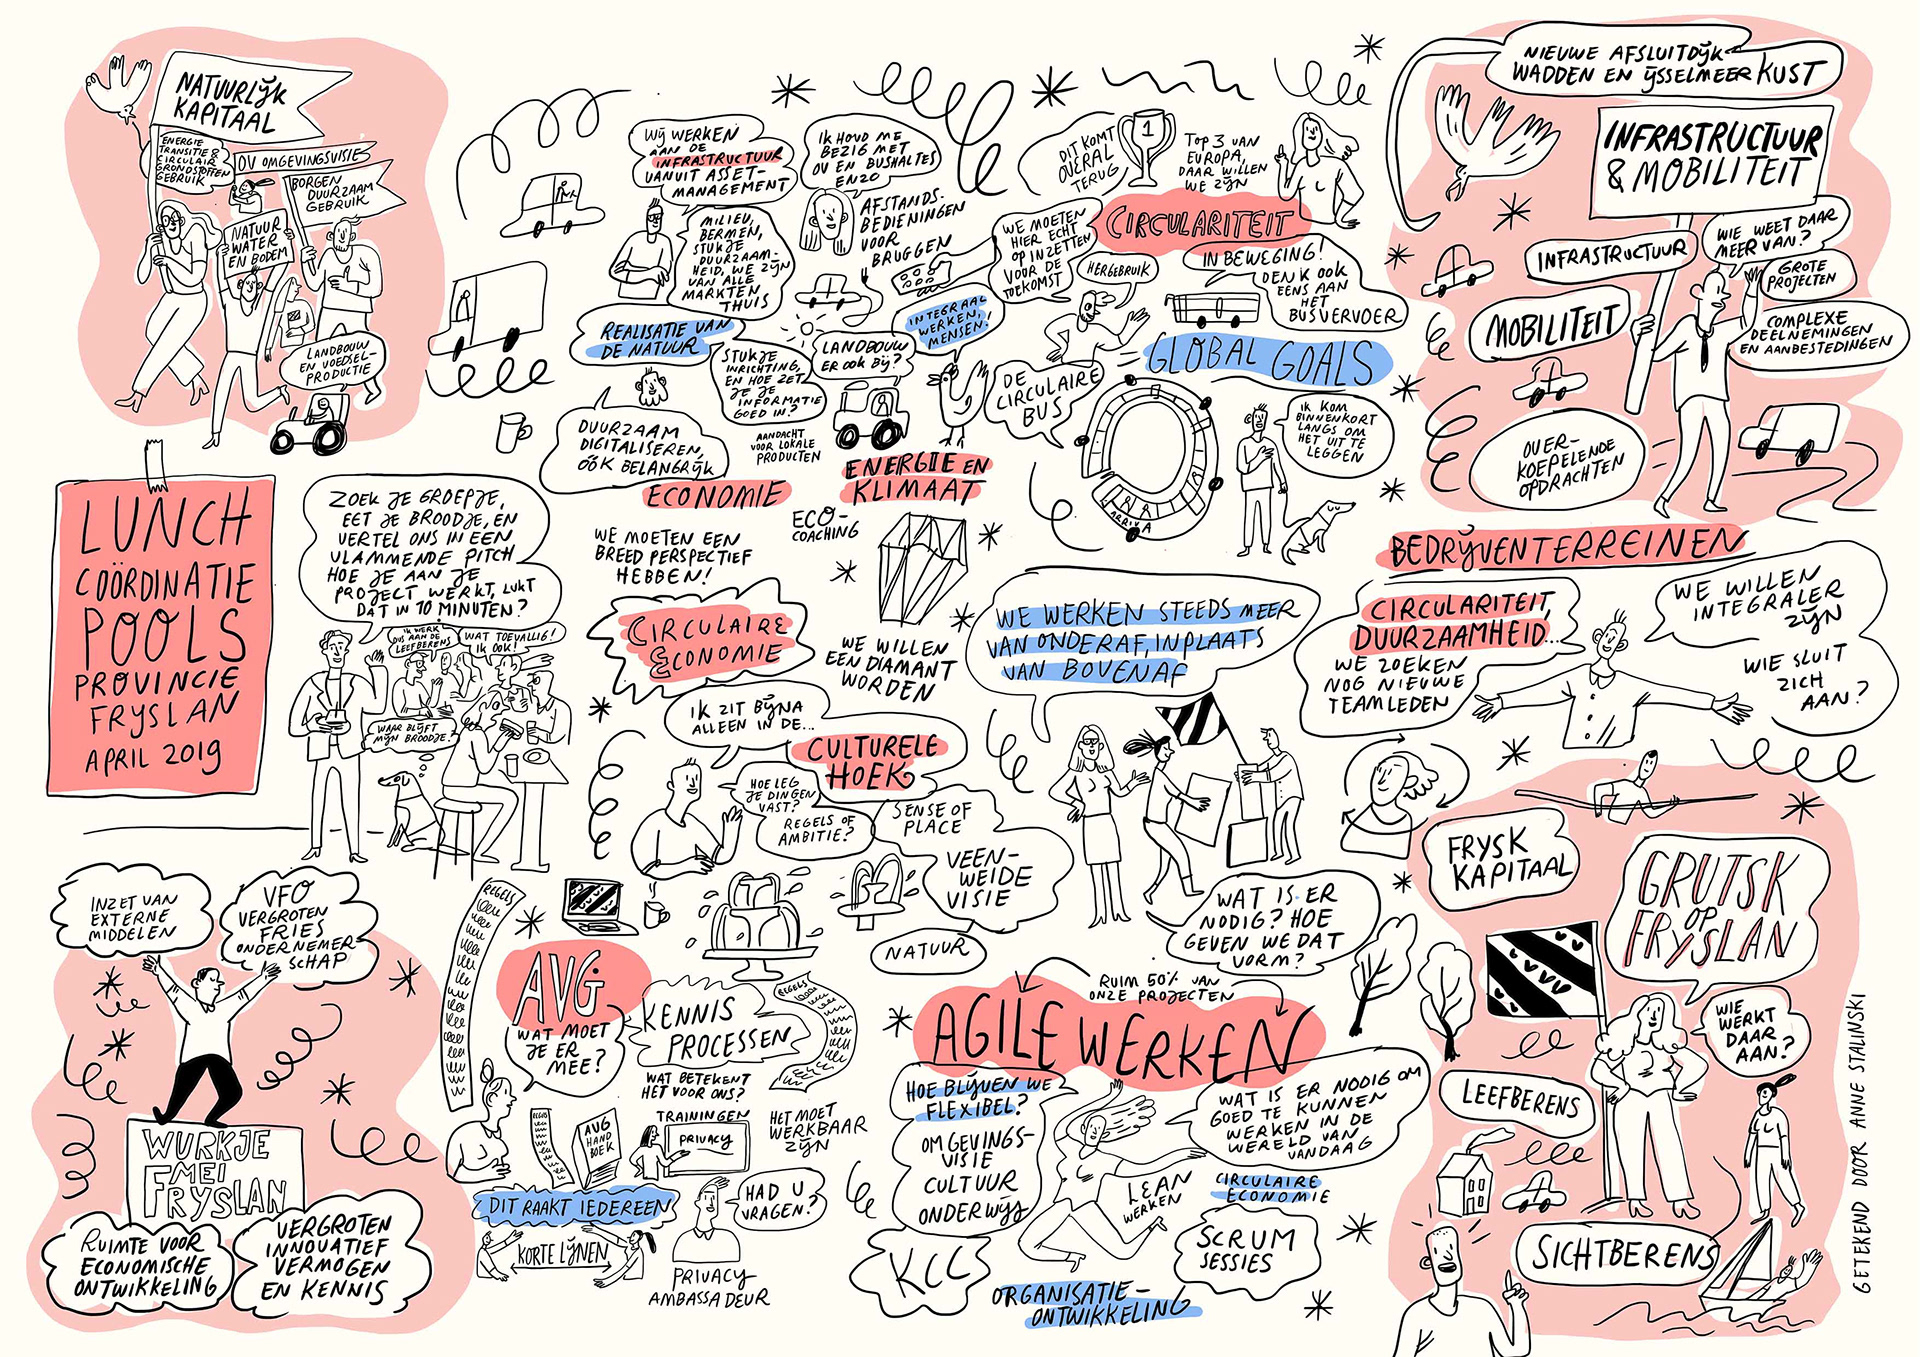 NATUURLIJK
KAPITAAL
ENERGIE
TRANSITIE &
CIRCULAIR
GRONDSTOFFEN
GEBRUIK
OV OMGEVINGSVISIE
BORGEN
DUURZAAM
GEBRUIK
NATUUR
WATER
EN BODEM
LANDBOUW
EN VOEDSEL-
PRODUCTIE
LUNCH
COÖRDINATIE
POOLS
PROVINCIE
FRYSLAN
APRIL 2019
ZOEK JE GROEPJE,
EET JE BROODJE, EN
VERTEL ONS IN EEN
VLAMMENDE PITCH
HOE JE AAN JE
PROJECT WERKT, LUKT
DAT IN 10 MINUTEN?
IK WERK
DUS AAN DE
LEEFBERENS
WAT TOEVALLIG!
IK OOK!
WAAR BLIJFT
MIJN BROODJE?
WIJ WERKEN
AAN DE
INFRASTRUCTUUR
VANUIT ASSET-
MANAGEMENT
MILIEU,
BERMEN,
STUKJE
DUURZAAM-
HEID, WE ZIJN
VAN ALLE
MARKTEN
THUIS
IK HOUD ME
BEZIG MET
OV EN BUSHALTES
ENZO
AFSTANDS-
BEDIENINGEN
VOOR
BRUGGEN
REALISATIE VAN
DE NATUUR
STUKJE
INRICHTING,
EN HOE ZET
JE JE
INFORMATIE
GOED IN?
LANDBOUW
ER OOK BIJ?
INTEGRAAL
WERKEN,
MENSEN!
DUURZAAM
DIGITALISEREN,
ÓÓK BELANGRIJK
AANDACHT
VOOR LOKALE
PRODUCTEN
ECONOMIE
ENERGIE EN
KLIMAAT
WE MOETEN EEN
BREED PERSPECTIEF
HEBBEN!
ECO-
COACHING
WE WILLEN
EEN DIAMANT
WORDEN
CIRCULAIRE
ECONOMIE
DIT KOMT
OVERAL
TERUG
1
TOP 3 VAN
EUROPA,
DAAR WILLEN
WE ZIJN
CIRCULARITEIT
WE MOETEN
HIER ECHT
OP INZETTEN
VOOR DE
TOEKOMST
HERGEBRUIK
IN BEWEGING!
DENK OOK
EENS AAN
HET
BUSVERVOER
GLOBAL GOALS
DE
CIRCULAIRE
BUS
ARRIVA
IK KOM
BINNENKORT
LANGS OM
HET UIT TE
LEGGEN
NIEUWE AFSLUITDIJK
WADDEN EN IJSSELMEER KUST
INFRASTRUCTUUR
& MOBILITEIT
INFRASTRUCTUUR
WIE WEET DAAR
MEER VAN?
GROTE
PROJECTEN
MOBILITEIT
COMPLEXE
DEELNEMINGEN
EN AANBESTEDINGEN
OVER-
KOEPELENDE
OPDRACHTEN
BEDRIJVENTERREINEN
CIRCULARITEIT,
DUURZAAMHEID...
WE ZOEKEN
NOG NIEUWE
TEAMLEDEN
WE WILLEN
INTEGRALER
ZIJN
WIE SLUIT
ZICH
AAN?
WE WERKEN STEEDS MEER
VAN ONDERAF, IN PLAATS
VAN BOVENAF
IK ZIT BIJNA
ALLEEN IN DE...
CULTURELE
HOEK
HOE LEG
JE DINGEN
VAST?
REGELS OF
AMBITIE?
SENSE OF
PLACE
VEEN-
WEIDE
VISIE
NATUUR
WAT IS ER
NODIG? HOE
GEVEN WE DAT
VORM?
INZET VAN
EXTERNE
MIDDELEN
VFO
VERGROTEN
FRIES
ONDERNEMER
SCHAP
WURKJE
MEI
FRYSLAN
RUIMTE VOOR
ECONOMISCHE
ONTWIKKELING
VERGROTEN
INNOVATIEF
VERMOGEN
EN KENNIS
REGELS
AVG
WAT MOET
JE ER
MEE?
KENNIS
PROCESSEN
REGELS
WAT BETEKENT
HET VOOR ONS?
REGELS
AVG
HAND
BOEK
TRAININGEN
PRIVACY
HET MOET
WERKBAAR
ZIJN
DIT RAAKT IEDEREEN
KORTE LIJNEN
HAD U
VRAGEN?
PRIVACY
AMBASSADEUR
RUIM 50% VAN
ONZE PROJECTEN
AGILE WERKEN
HOE BLIJVEN WE
FLEXIBEL?
OMGEVINGS-
VISIE
CULTUUR
ONDERWIJS
KCC
WAT IS ER NODIG OM
GOED TE KUNNEN
WERKEN IN DE
WERELD VAN
VANDAAG
LEAN
WERKEN
CIRCULAIRE
ECONOMIE
SCRUM
SESSIES
ORGANISATIE-
ONTWIKKELING
FRYSK
KAPITAAL
GRUTSK
OP
FRYSLAN
WIE
WERKT
DAAR
AAN?
LEEFBERENS
SICHTBERENS
GETEKEND DOOR ANNE STALINSKI